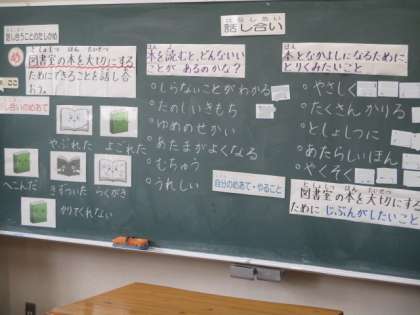 話し合い
話し合うことのたしかめ
め
図書室の本を大切にする
ためにできることを話し合
おう。
話し合いのめあて
やぶれた よごれた
へこんだ きずついた らくがき
かりてくれない
本を読むと、どんないい
ことが あるのかな?
しらないことがわかる
たのしいきもち
ゆめのせかい
あたまがよくなる
むちゅう
うれしい
自分のめあて・やること
本となかよしになるために、
とりくみたいこと
やさしく
たくさんかりる
としょしつに
あたらしいほん
やくそく
図書室の本を大切にする
ために じぶんがしたいこと